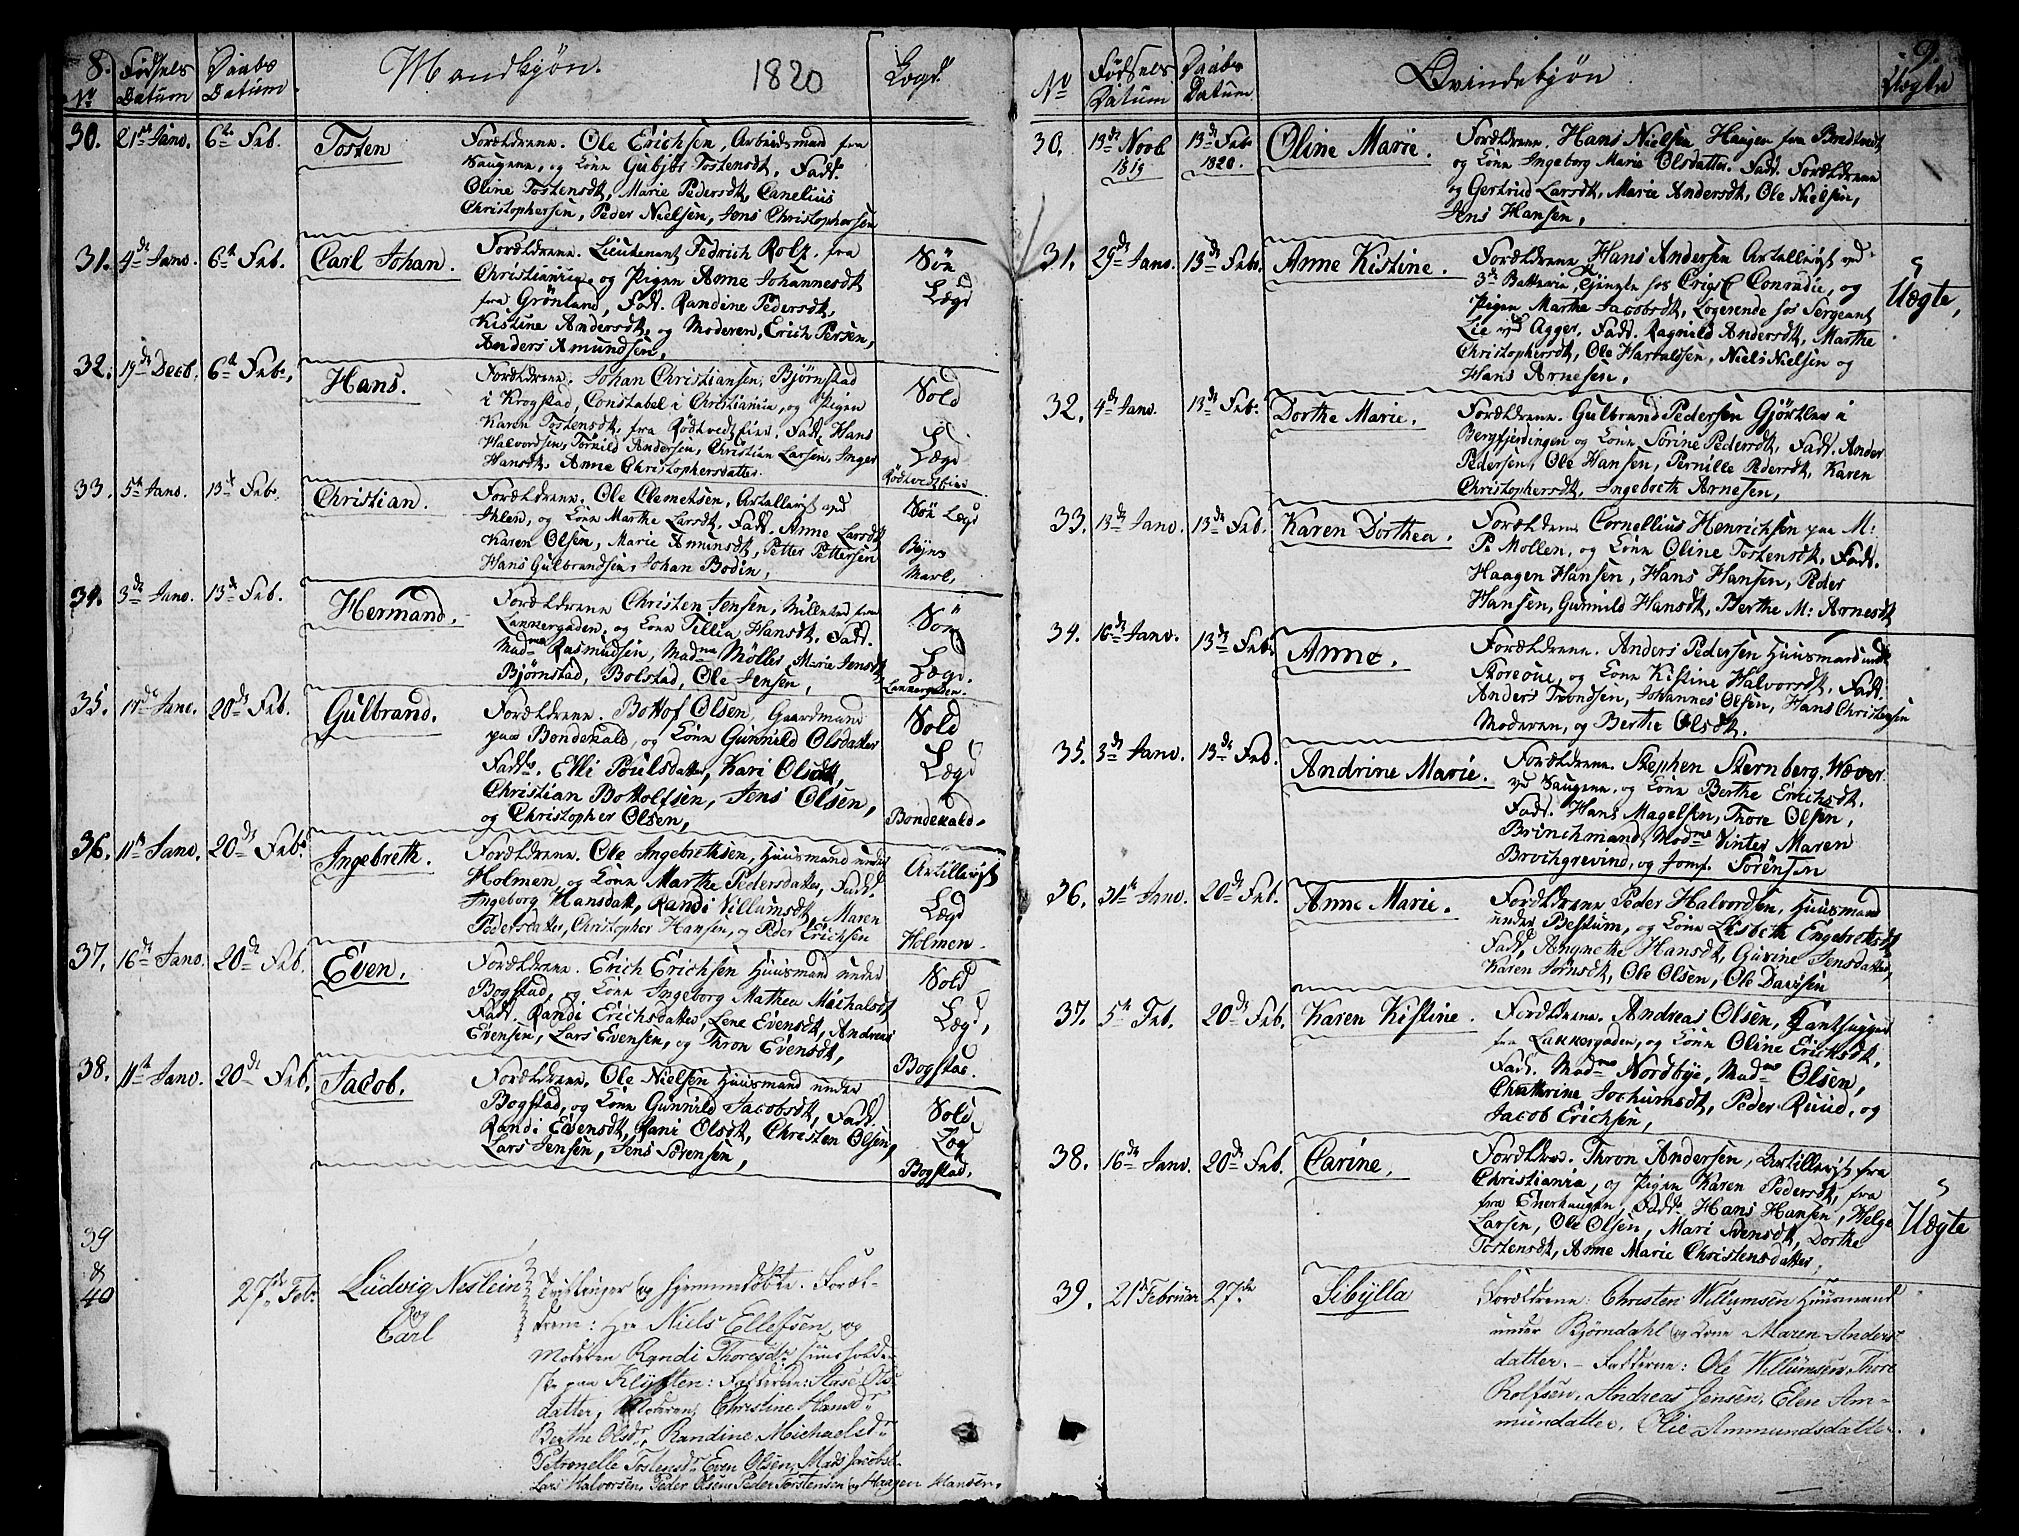 8.
No
Fødsels
Datum
Daabs
Datum
Mandkjøn.
1820
Lægd
30.
21de Jano.
6te Feb.
Tosten
Forældrene. Ole Erichsen, Arbeidsmad fra
Saugene, og Kone Gubjør Tostensdt. Fadr.
Oline Tostensdt, Marie Pedersdt, Canelius
Christophersen, Peder Nielsen, Jens Christophersen
31.
4de Jano.
6te Feb.
Carl Johan.
Forældrene. Lieutenant Fedrich Rolf. fra
Christiania og Pigen Anne Johannesdt
fra Grønland, Fadr. Randine Pedersdt,
Kistine Andersdt, og Moderen, Erich Persen,
Anders Amundsen,
Søn
Lægd
32.
19de Decb.
6te Feb.
Hans.
Forældrene. Johan Christiansen, Bjørnstad
i Krogstad, Constabel i Christiania, og Pigen
Karen Tostensdt, fra Rødtvedt Eier. Fadr. Hans
Halvordsen, Tornild Andersen, Christian Larsen, Inger
Hansdt, Anne Christophersdatter.
Sold
Lægd
Rødtvedt Eier
33.
5te Jano.
13de Feb.
Christian.
Forældrene. Ole Clemetsen, Artallerist ved
Ihlen, og Kone Marthe Larsdt, Fadr. Anne Larsdt
Karen Olsen, Marie Amunsdt, Petter Pettersen
Hans Gulbrandsen, Johan Bodin,
Søn Lægd
Byns
Mark,
34.
3de Jano.
13de Feb.
Hermand.
Forældrene Christen Jensen, fra
Lakkergaden, og Kone Tillia Hansdt. Fadr.
Madme Rasmudsen, Madme Møller, Marie Jensdt
Bjørnstad, Bolstad, Ole Jensen,
Søn
Lægd.
Lakkergaden.
35.
20de Feb.
Gulbrand.
Forældrene. Bottof Olsen, Gaardmand
paa Bondekald, og Kone Gunnild Olsdatter
Fadr. Elli Poulsdatter, Kari Olsdt,
Christian Bottolfsen, Jens Olsen,
og Christopher Olsen,
Sold
Lægd
Bondekald.
36.
11te Jano.
20de Feb.
Ingebreth.
Forældrene. Ole Ingebrethsen, Huusmand under
Holmen, og Kone Marthe Pedersdatter, Fadr.
Ingeborg Hansdatt, Randi Villumsdt, Maren
Pedersdatter, Christopher Hansen, og Peder Erichsen
Artillerist
Lægd
Holmen.
37.
16de Jano.
20de Feb.
Even.
Forældrene. Erich Erichsen Huusmand under
Bogstad, og Kone Ingeborg Mathea Michalsdt
Fadr. Randi Erichsdatter, Lene Evensdt, Andreas
Evensen, Lars Evensen, og Thron Evensdt,
Sold
Lægd,
Bogstad.
38.
11te Jano.
20de Feb.
Jacob.
Forældrene. Ole Nielsen Huusmand under
Bogstad, og Kone Gunnild Jacobsdt, Fadr.
Randi Evensdt, Rani Olsdt, Christen Olsen,
Lars Jensen, Jens Sørensen,
Sold
Læg
Bogstad.
39
&
40
27de Febr
Ludvig Neslein
og
Carl
Tvillinger og hjemmedøbte. Foræl-
drene: Niels Ellefsen, og
Moderen Randi Thoresdr huusholder-
ske paa Klyften: Fadderne: Aase Ols
datter, Moderen, Christine Hansdr
Berthe Olsdr, Randine Michaelsdr
Petronelle Tostensdr Even Olsen, Mads Jacobse
Lars Halvorsen, Peder Olsen, Peder Torstensen og Haagen Hansen.
9.
No
Fødsels
Datum
Daabs
Datum
Qvindekjøn
Uægte
30.
13de Novb
1819
13de Feb
1820.
Oline Marie.
Forældrene. Hans Nielsen Haugen fra Bredtvedt
og Kone Ingeborg Marie Olsdatter. Fadr. Forældrene
og Gertrud Larsdt, Marie Andersdt, Ole Nielsen,
Jens Hansen,
31.
29de Jano.
13de Feb.
Anne Kistine.
Forældrene Hans Andersen Artallerist ved
3de Batterie, tjenste hos Conradie, og
Pigen Marthe Jacobsdt, Logerende hos Sergeant
Lie ved Agger. Fadr. Ragnild Andersdt, Marthe
Christophersdt, Ole Harvaldsen, Niels Nielsen og
Hans Arnesen,
Uægte,
32.
4de Jano.
13de Feb.
Dorthe Marie.
Forældrene. Gulbrand Pedersen Gjørtler i
Bergfjerdingen og Kone Sørine Pedersdt, Fadr. Ander
Pedersen, Ole Hansen, Pernille Pedersdt, Karen
Christophersdt, Ingebreth Arnesen,
33.
13de Jano.
13de Feb.
Karen Dorthea.
Forældrene Cornellius Henrichsen paa M:
Pe Møllen, og Kone Oline Tostensdt, Fadr.
Haagen Hansen, Hans Hansen, Peder
Hansen, Gunnild Hansdt, Berthe M: Arnesdt
34.
16de Jano.
13de Feb.
Anne.
Forældrene. Anders Pedersen Huusmand undr
Storeøue, og Kone Kistine Halvorsdt, Fadr.
Anders Trondsen, Johannes Olsen, Hans Christensen
Moderen, og Berthe Olsdt.
35.
3de Jano.
13de Feb.
Andrine Marie.
Forældrene. Stephen Sternberg, Wæver
ved Saugene. og Kone Berthe Erichsdt.
Fadr. Hans Magelsen, Thore Olsen,
Brinchmand, Madme Vinter, Maren
Brochgrevind, og Jomf. Sørensen
36.
31te Jano.
20de Feb.
Anne Marie.
Forældrene Peder Halvordsen, Huusmand
under Bestum, og Kone Lisbeth Engebretsdt
Fadr, Angnethe Hansdt, Gurine Jensdatter,
Karen Jørnsdt, Ole Olsen, Ole Davisen
37.
5te Feb.
20de Feb.
Karen Kistine.
Forældrene. Andreas Olsen,
fra Lakkergaden, og Kone Oline Ericksdt,
Fadr. Madme Nordbye, Madme Olsen,
Chathrine Jochumsdt, Peder Ruud, og
Jacob Erichsen,
38.
16de Jano.
20de Feb.
Carine,
Forældrene. Thron Andersen, Artillerist fra
Christiania, og Pigen Karen Pedersdt, fra
fra Enerhaugen, Fadr. Hans Hansen, Helge
Larsen, Ole Olsen, Mari Svensdt, Dorthe
Tostensdt, Anne Marie Christensdatter,
Uægte
39.
21de Februar
27de
Sibylla
Forældrene: Christen Willumsen Huusmand
under Bjørndahl og Kone Maren Anders-
datter. - Fadderne: Ole Willumsen Thore
Rolfsen, Andreas Jensen, Elen Am-
mundatter, Olie Ammundsdatter.